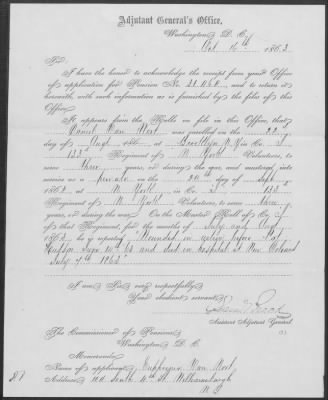 Adjutant General's Office,
Washington, D. C.
Oct 16th 1863
Sir:
I have the honor to acknowledge the receipt from your Office
of application for Pension No. and to return it
herewith, with such information as is furnished by the files of this
Office.
It appears from the Rolls on file in this Office, that
Daniel Van was enrolled on the 22nd
day of Augt 1862 at Brooklyn N.Y. in Co. I
133rd Regiment of N. York Volunteers, to
serve three years, or during the war, and mustered into
service as a private on the 24th of Sept
1862 at N. York in Co. I 133
Regiment of N. York Volunteers, to serve three
years, or during the war. On the Muster Roll of Co. I
of that Regiment, for the months of July and Augt
1863 he is reported "Wounded in action before Port
Hudson June 14th 63 and died in hospital at New Orleans
July 7th 1863"
I am, Sir, very respectfully,
Your obedient servant,
Assistant Adjutant General
The Commissioner of Pensions,
Washington, D. C.
Memoranda
Name of applicant, Van
Address, South 4th St. Williamsburgh
N.Y.